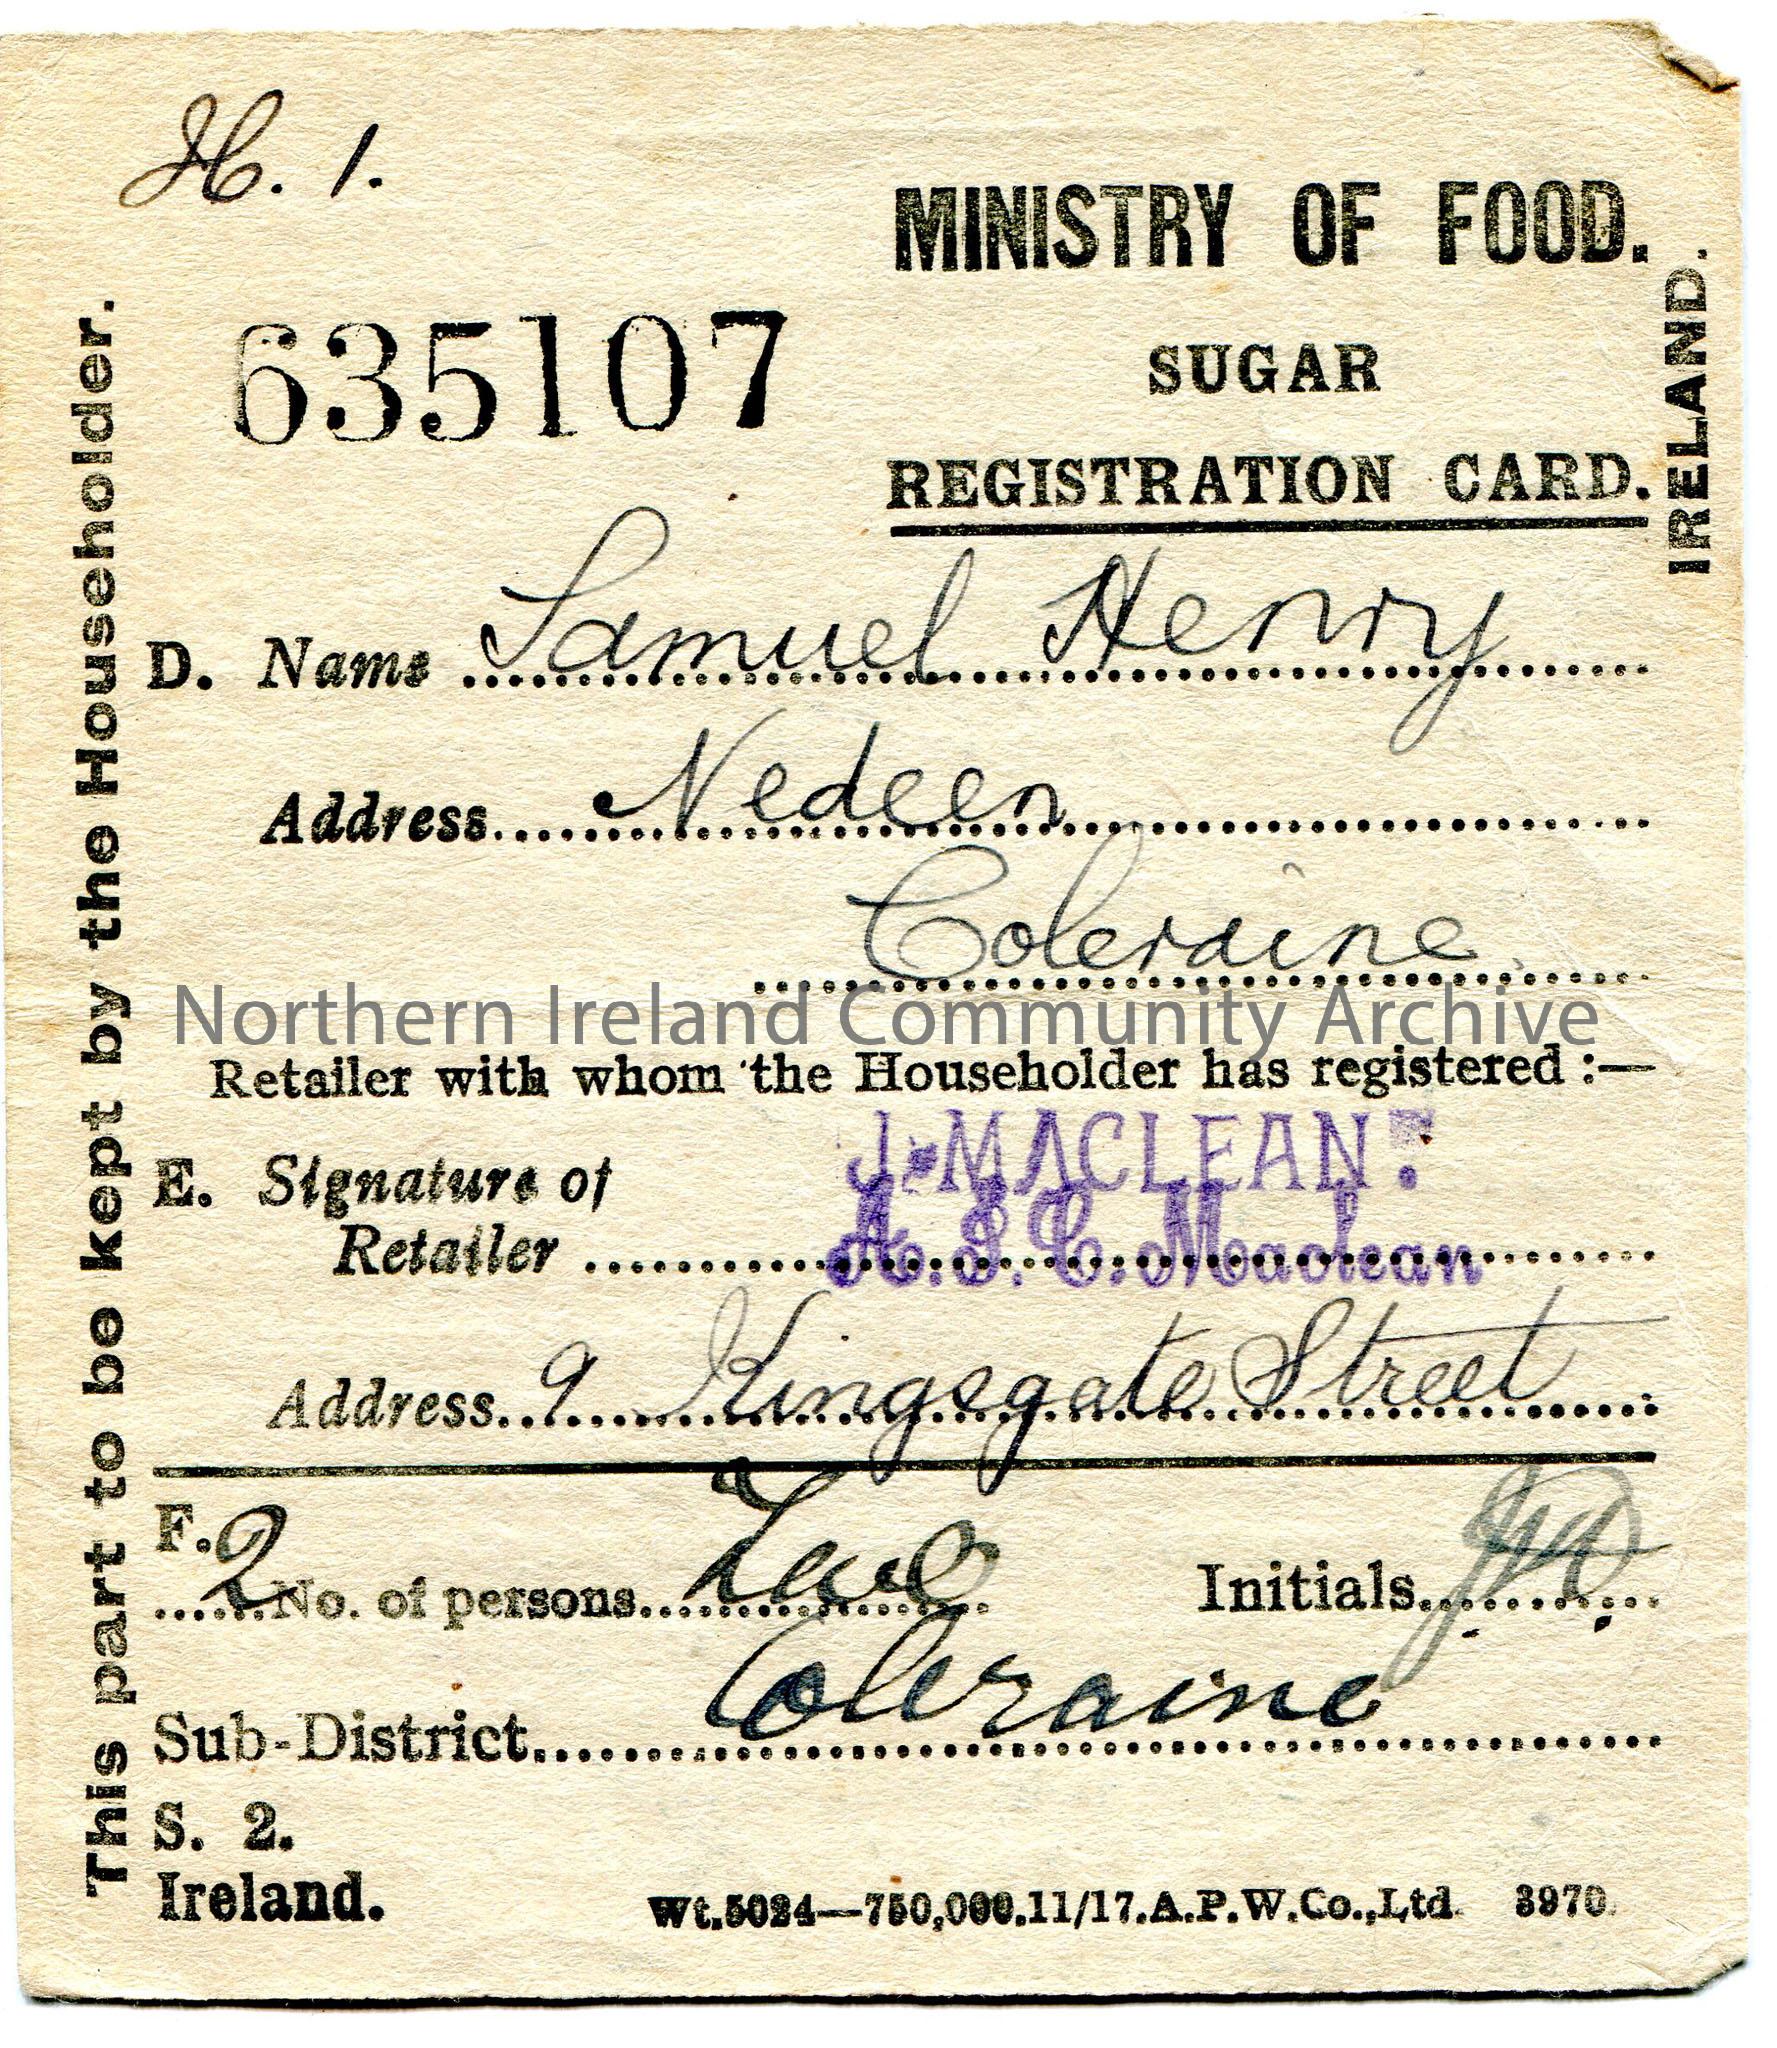 H. 1.
MINISTRY OF FOOD.
635107
SUGAR
REGISTRATION CARD.
IRELAND.
This part to be kept by the Householder.
D. Name Samuel Henry
Address Nedeen
Coleraine
Northern Ireland Community Archive
Retailer with whom the Householder has registered :—
J. MACLEAN.
E. Signature of
Retailer A. J. C. Maclean
Address 9 Kingsgate Street
F.
2 No. of persons Two Initials
Sub-District Coleraine
S. 2.
Ireland.
Wt.5024—750,000.11/17.A.P.W.Co.,Ltd. 3970.